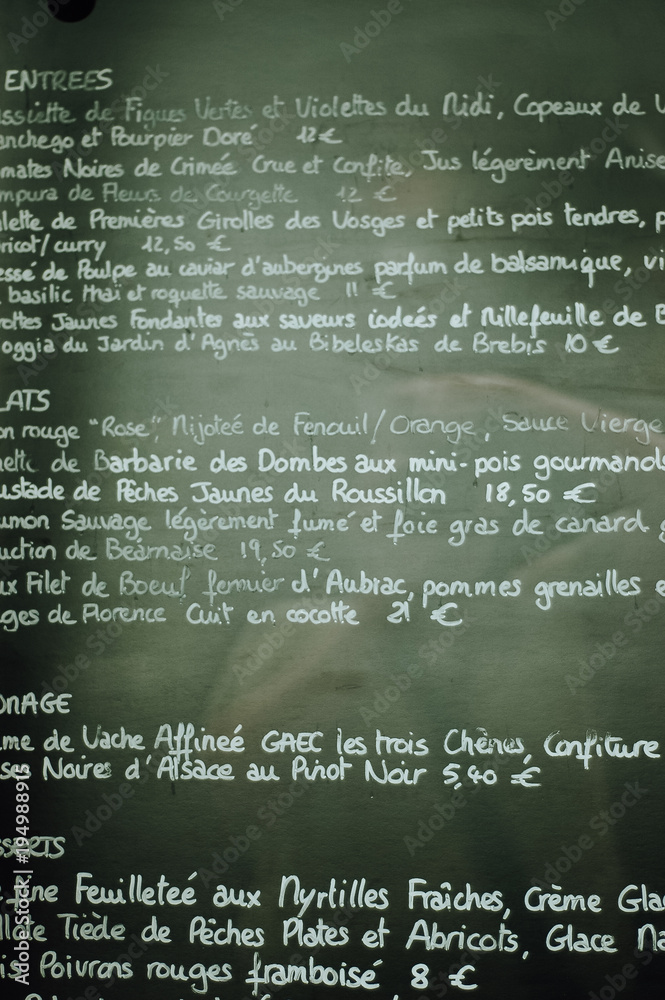 ENTREES
ssiette de Figues Vertes et Violettes du Midi, Copeaux de V
anchego et Pourpier Doré 12 €
mates Noires de Crimée Crue et Confite, Jus légerèment Anise
mpura de Fleurs de Courgette 12 €
lette de Premières Girolles des Vosges et petits pois tendres, p
ricot/curry 12,50 €
essé de Poulpe au caviar d'aubergines parfum de balsamique, vi
basilic thaï et roquette sauvage 11 €
rottes Jaunes Fondantes aux saveurs iodées et Millefeuille de B
oggia du Jardin d'Agnès au Bibeleskas de Brebis 10 €
LATS
on rouge "Rose", Mijoteé de Fenouil/Orange, Sauce Vierge
nette de Barbarie des Dombes aux mini-pois gourmands
ustade de Pêches Jaunes du Roussillon 18,50 €
umon Sauvage légèrement fumé et foie gras de canard
uction de Béarnaise 19,50 €
ux Filet de Boeuf fermier d'Aubrac, pommes grenailles e
ges de Florence Cuit en cocotte 21 €
ONAGE
me de Vache Affineé GAEC les trois Chênes, Confiture
ses Noires d'Alsace au Pinot Noir 5,40 €
SSERTS
ine Feuilleteé aux Myrtilles Fraîches, Crème Gla
llote Tiède de Pêches Plates et Abricots, Glace Na
is Poivrons rouges framboisé 8 €
Adobe Stock
Adobe Stock | #194988915